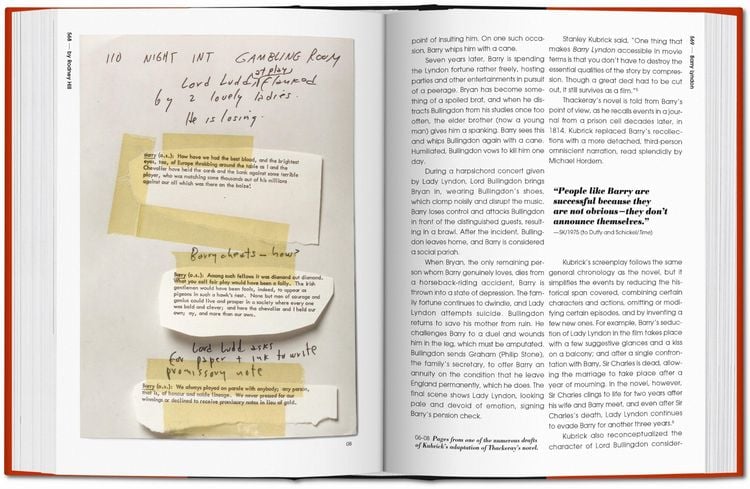 568 — by Rodney Hill
110 NIGHT INT GAMBLING ROOM
at play
Lord Ludd flanked
by 2 lovely ladies.
He is losing.
Barry (o.s.): How have we had the best blood, and the brightest
eyes, too, of Europe throbbing around the table as I and the
Chevalier have held the cards and the bank against some terrible
player, who was matching some thousands out of his millions
against our all which was there on the baize!
Barry cheats — how?
Barry (o.s.): Among such fellows it was diamond cut diamond.
What you call fair play would have been a folly. The Irish
gentlemen would have been fools, indeed, to appear as
pigeons in such a hawk's nest. None but men of courage and
genius could live and prosper in a society where every one
was bold and clever; and here the chevalier and I held our
own; ay, and more than our own.
Lord Ludd asks
for paper + ink to write
promissory note
Barry (o.s.): We always played on parole with anybody; any person,
that is, of honour and noble lineage. We never pressed for our
winnings or declined to receive promissory notes in lieu of gold.
06
point of insulting him. On one such occa-
sion, Barry whips him with a cane.
Seven years later, Barry is spending
the Lyndon fortune rather freely, hosting
parties and other entertainments in pursuit
of a peerage. Bryan has become some-
thing of a spoiled brat, and when he dis-
tracts Bullingdon from his studies once too
often, the elder brother (now a young
man) gives him a spanking. Barry sees this
and whips Bullingdon again with a cane.
Humiliated, Bullingdon vows to kill him one
day.
During a harpsichord concert given
by Lady Lyndon, Lord Bullingdon brings
Bryan in, wearing Bullingdon's shoes,
which clomp noisily and disrupt the music.
Barry loses control and attacks Bullingdon
in front of the distinguished guests, result-
ing in a brawl. After the incident, Bulling-
don leaves home, and Barry is considered
a social pariah.
When Bryan, the only remaining per-
son whom Barry genuinely loves, dies from
a horseback-riding accident, Barry is
thrown into a state of depression. The fam-
ily fortune continues to dwindle, and Lady
Lyndon attempts suicide. Bullingdon
returns to save his mother from ruin. He
challenges Barry to a duel and wounds
him in the leg, which must be amputated.
Bullingdon sends Graham (Philip Stone),
the family's secretary, to offer Barry an
annuity on the condition that he leave
England permanently, which he does. The
final scene shows Lady Lyndon, looking
pale and devoid of emotion, signing
Barry's pension check.
06–08 Pages from one of the numerous drafts
of Kubrick's adaptation of Thackeray's novel.
Stanley Kubrick said, "One thing that
makes Barry Lyndon accessible in movie
terms is that you don't have to destroy the
essential qualities of the story by compres-
sion. Though a great deal had to be cut
out, it still survives as a film."⁵
Thackeray's novel is told from Barry's
point of view, as he recalls events in a jour-
nal from a prison cell decades later, in
1814. Kubrick replaced Barry's recollec-
tions with a more detached, third-person
omniscient narration, read splendidly by
Michael Hordern.
"People like Barry are
successful because they
are not obvious—they don't
announce themselves."
—SK/1975 (to Duffy and Schickel/Time)
Kubrick's screenplay follows the same
general chronology as the novel, but it
simplifies the events by reducing the his-
torical span covered, combining certain
characters and actions, omitting or modi-
fying certain episodes, and by inventing a
few new ones. For example, Barry's seduc-
tion of Lady Lyndon in the film takes place
with a few suggestive glances and a kiss
on a balcony; and after a single confron-
tation with Barry, Sir Charles is dead, allow-
ing the marriage to take place after a
year of mourning. In the novel, however,
Sir Charles clings to life for two years after
his wife and Barry meet, and even after Sir
Charles's death, Lady Lyndon continues
to evade Barry for another three years.⁶
Kubrick also reconceptualized the
character of Lord Bullingdon consider-
569 — Barry Lyndon